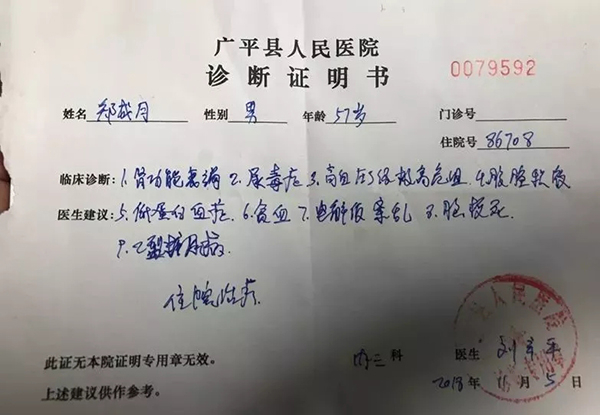 广平县人民医院
诊断证明书
0079592
姓名 郑成月 性别 男 年龄 57岁 门诊号
住院号 86708
临床诊断：1.肾功能衰竭 2.尿毒症 3.高血压3级极高危组 4.腹腔积液
医生建议：5.低蛋白血症 6.贫血 7.电解质紊乱 8.脑梗死
9.2型糖尿病
住院治疗
此证无本院证明专用章无效。 内三 科 医生
上述建议供作参考。 2018 年 11 月 5 日
县人民医院